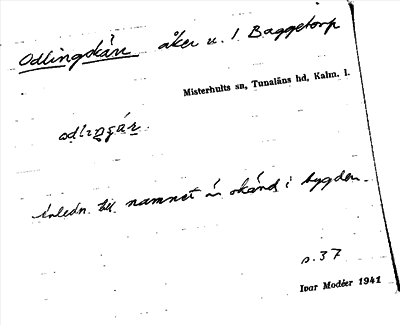 Odlingskärr åker u. 1 Baggetorp
Misterhults sn, Tunaläns hd, Kalm. l.
inledn. till namnet är okänd i bygden.
s. 37
Ivar Modéer 1941